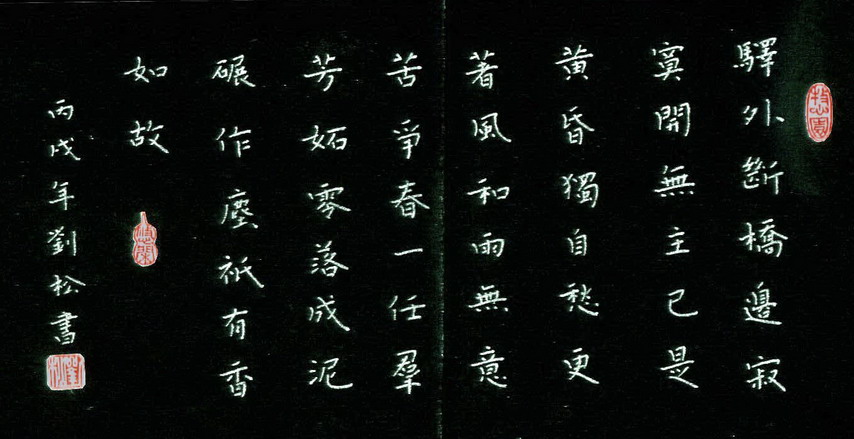 驛外斷橋邊寂
寞開無主已是
黃昏獨自愁更
著風和雨無意
苦爭春一任羣
芳妬零落成泥
碾作塵祇有香
如故
丙戌年劉松書